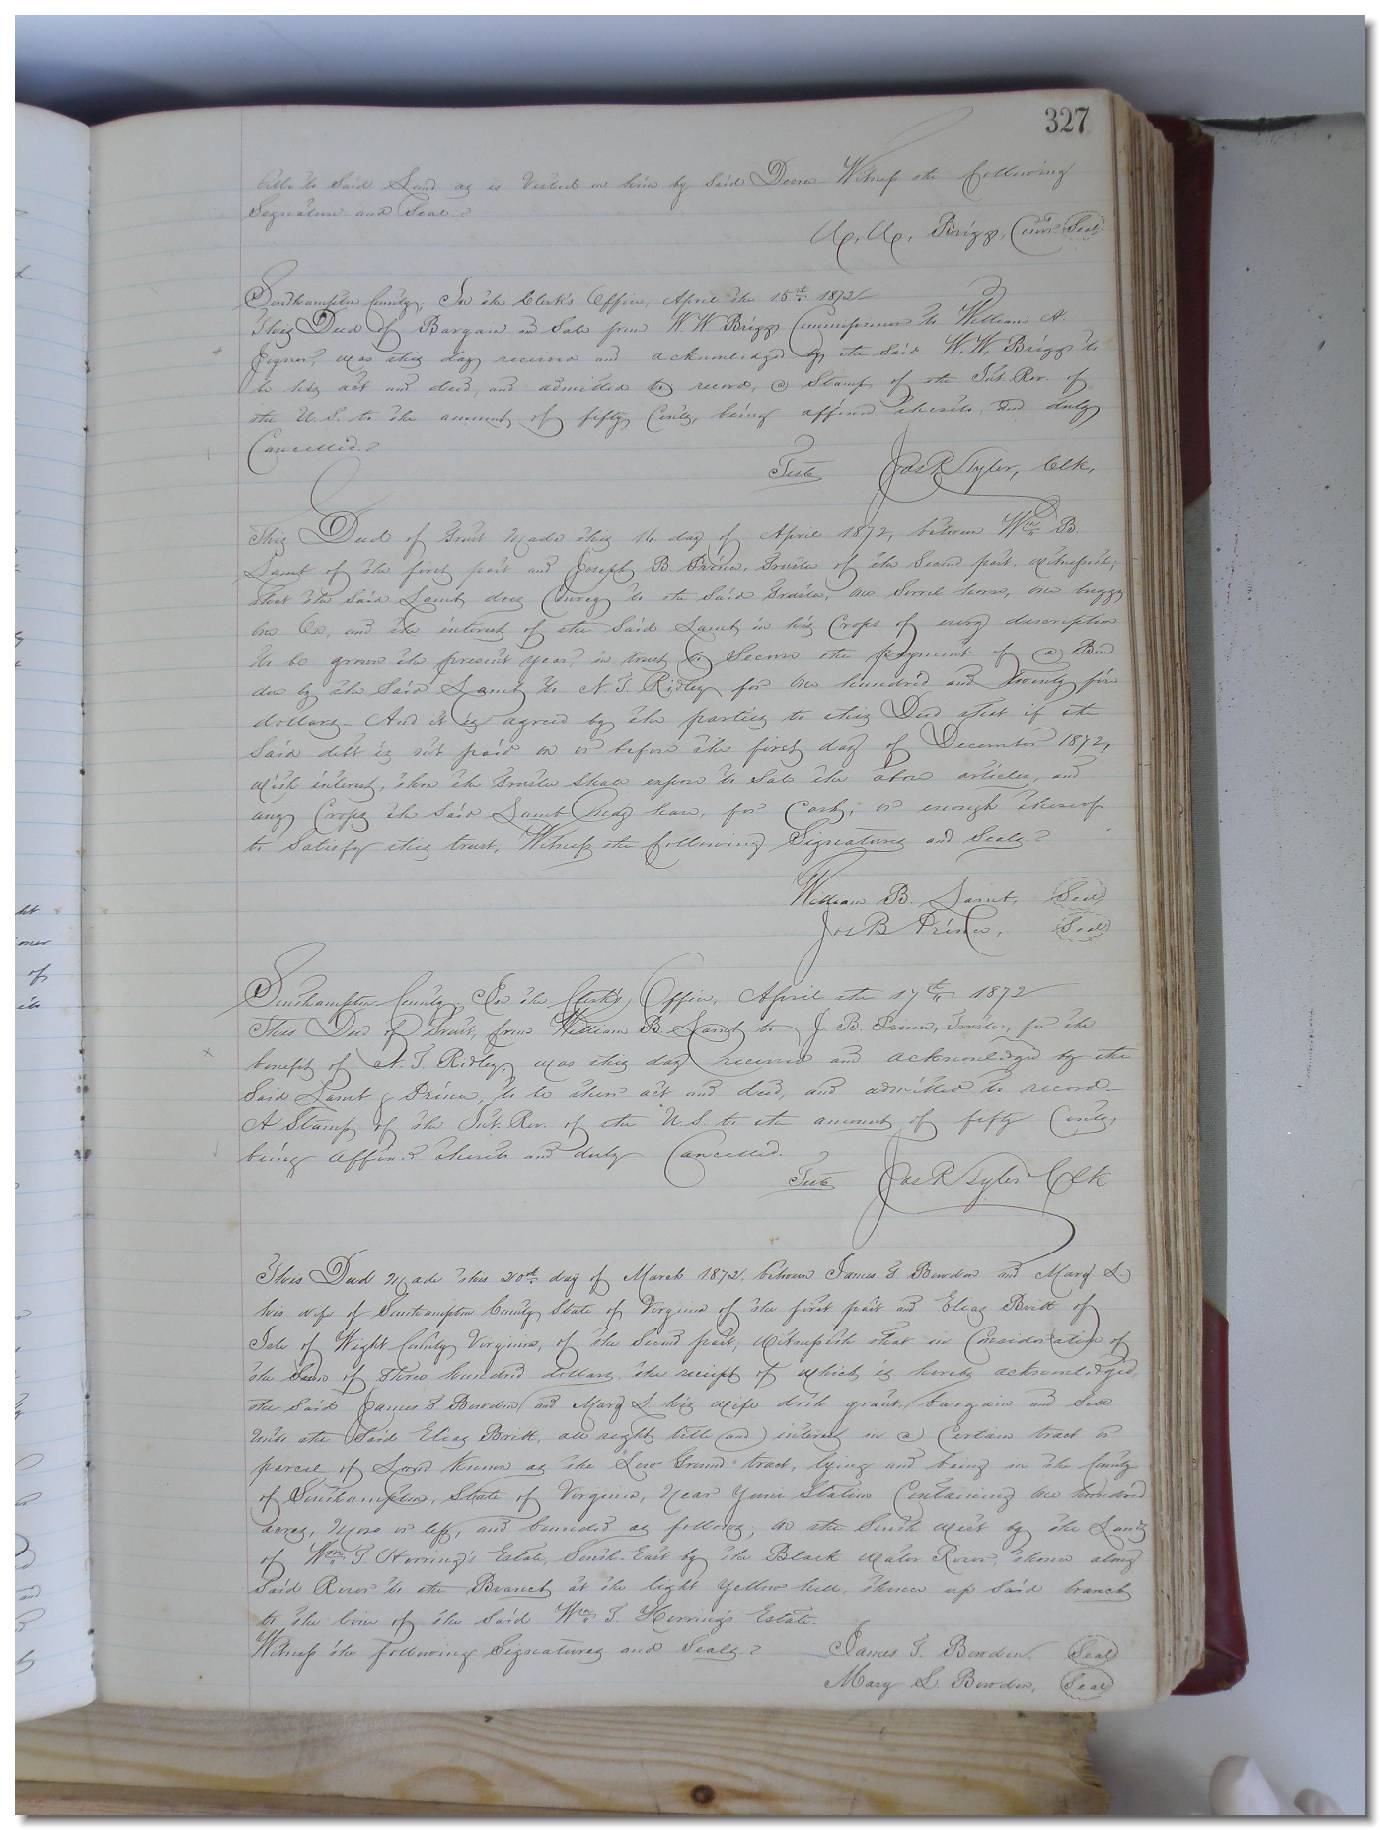 327
title to said Land as is Vested in him by said Deeree Witness the following
Signature and Seal.
W. W. Briggs, Comr Seal
Southampton County, In the Clerk's Office, April the 15th 1872
This Deed of Bargain and Sale from W. W. Briggs Commissioner to William A.
Joyner, was this day received and acknowledged by the said W. W. Briggs to
be his act and deed, and admitted to record, a Stamp of the Int. Rev. of
the U.S. to the amount of fifty Cents, being affixed thereto and duly
Cancelled.
Teste Jas R Tyler, Clk,
This Deed of Trust Made this 16 day of April 1872, between Wm B.
Lamb of the first part and Joseph B. Prince, Trustee of the Second part, Witnesseth;
that the said Lamb does Convey to the said Trustee, one Sorrel horse, one buggy
one Ox, and the interest of the Said Lamb in his Crops of every description
to be grown the present year, in trust to Secure the payment of a Bond
due by the Said Lamb to N. T. Ridley for One hundred and Twenty five
dollars. And it is agreed by the parties to this Deed that if the
Said debt is not paid on or before the first day of December 1872,
with interest, then the Trustee shall expose to Sale the above articles, and
any Crops the Said Lamb May have, for Cash, or enough thereof
to Satisfy this trust, Witness the following Signatures and Seals.
William B. Lamb, Seal
Jos B Prince, Seal
Southampton County In the Clerk's Office, April the 17th 1872
This Deed of Trust, from William B. Lamb to J. B. Prince, Trustee, for the
benefit of N. T. Ridley was this day received and acknowledged by the
Said Lamb & Prince, to be their act and deed, and admitted to record
A Stamp of the Int. Rev. of the U.S. to the amount of fifty Cents,
being affixed thereto and duly Cancelled.
Teste Jas R Tyler Clk
This Deed Made this 20th day of March 1872, between James T. Bowden and Mary L
his wife of Southampton County State of Virginia of the first part and Elias Britt of
Isle of Wight County Virginia, of the Second part, Witnesseth that in Consideration of
the Sum of Three hundred dollars, the receipt of which is hereby acknowledged,
the Said James T. Bowden and Mary L. his wife doth grant, bargain and Sell
unto the Said Elias Britt, all right title and interest in a Certain tract or
parcel of Land Known as the "Low Ground" tract, lying and being in the County
of Southampton, State of Virginia, Near Station Containing One hundred
acres, More or less, and bounded as follows; on the South West by the Lands
of Wm T. Herring's Estate, South-East by the Black Water River, thence along
Said River to the Branch at the light yellow hill, thence up Said branch
to the line of the Said Wm T. Herring's Estate.
Witness the following Signatures and Seals. James T. Bowden. Seal
Mary L. Bowden, Seal